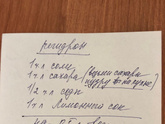 регидрон
1 ч л соли
1 ч л сахара (вместо сахара
пудру
1/2 ч л соды
1 ч л лимонный сок
на